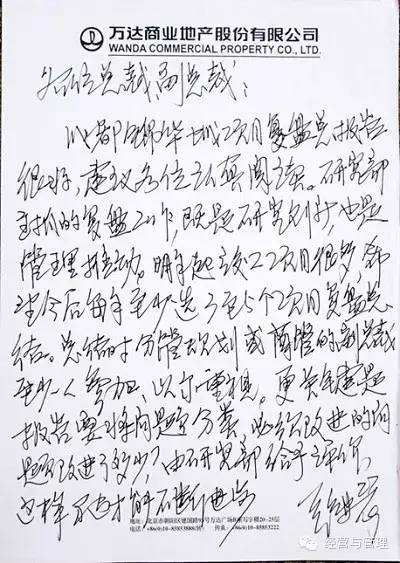 万达商业地产股份有限公司
WANDA COMMERCIAL PROPERTY CO., LTD.
各位总裁副总裁：
成都锦华城项目复盘总报告
很好，建议各位认真阅读。研究部
主抓的复盘工作，既是研究创新，也是
管理推动。明年起交工项目很多，
今后每年至少选3至5个项目复盘总
结。总结时分管规划或商管的副总裁
至少一人参加，以示重视。更关键是
报告要将问题分类，必须改进的问
题改进了多少，由研究部给予评价，
这样万达才能不断进步
地址：北京市朝阳区建国路93号万达广场B座写字楼20-25层
电话：+86(0)10-85853888 传真：+86(0)10-85853222
经营与管理